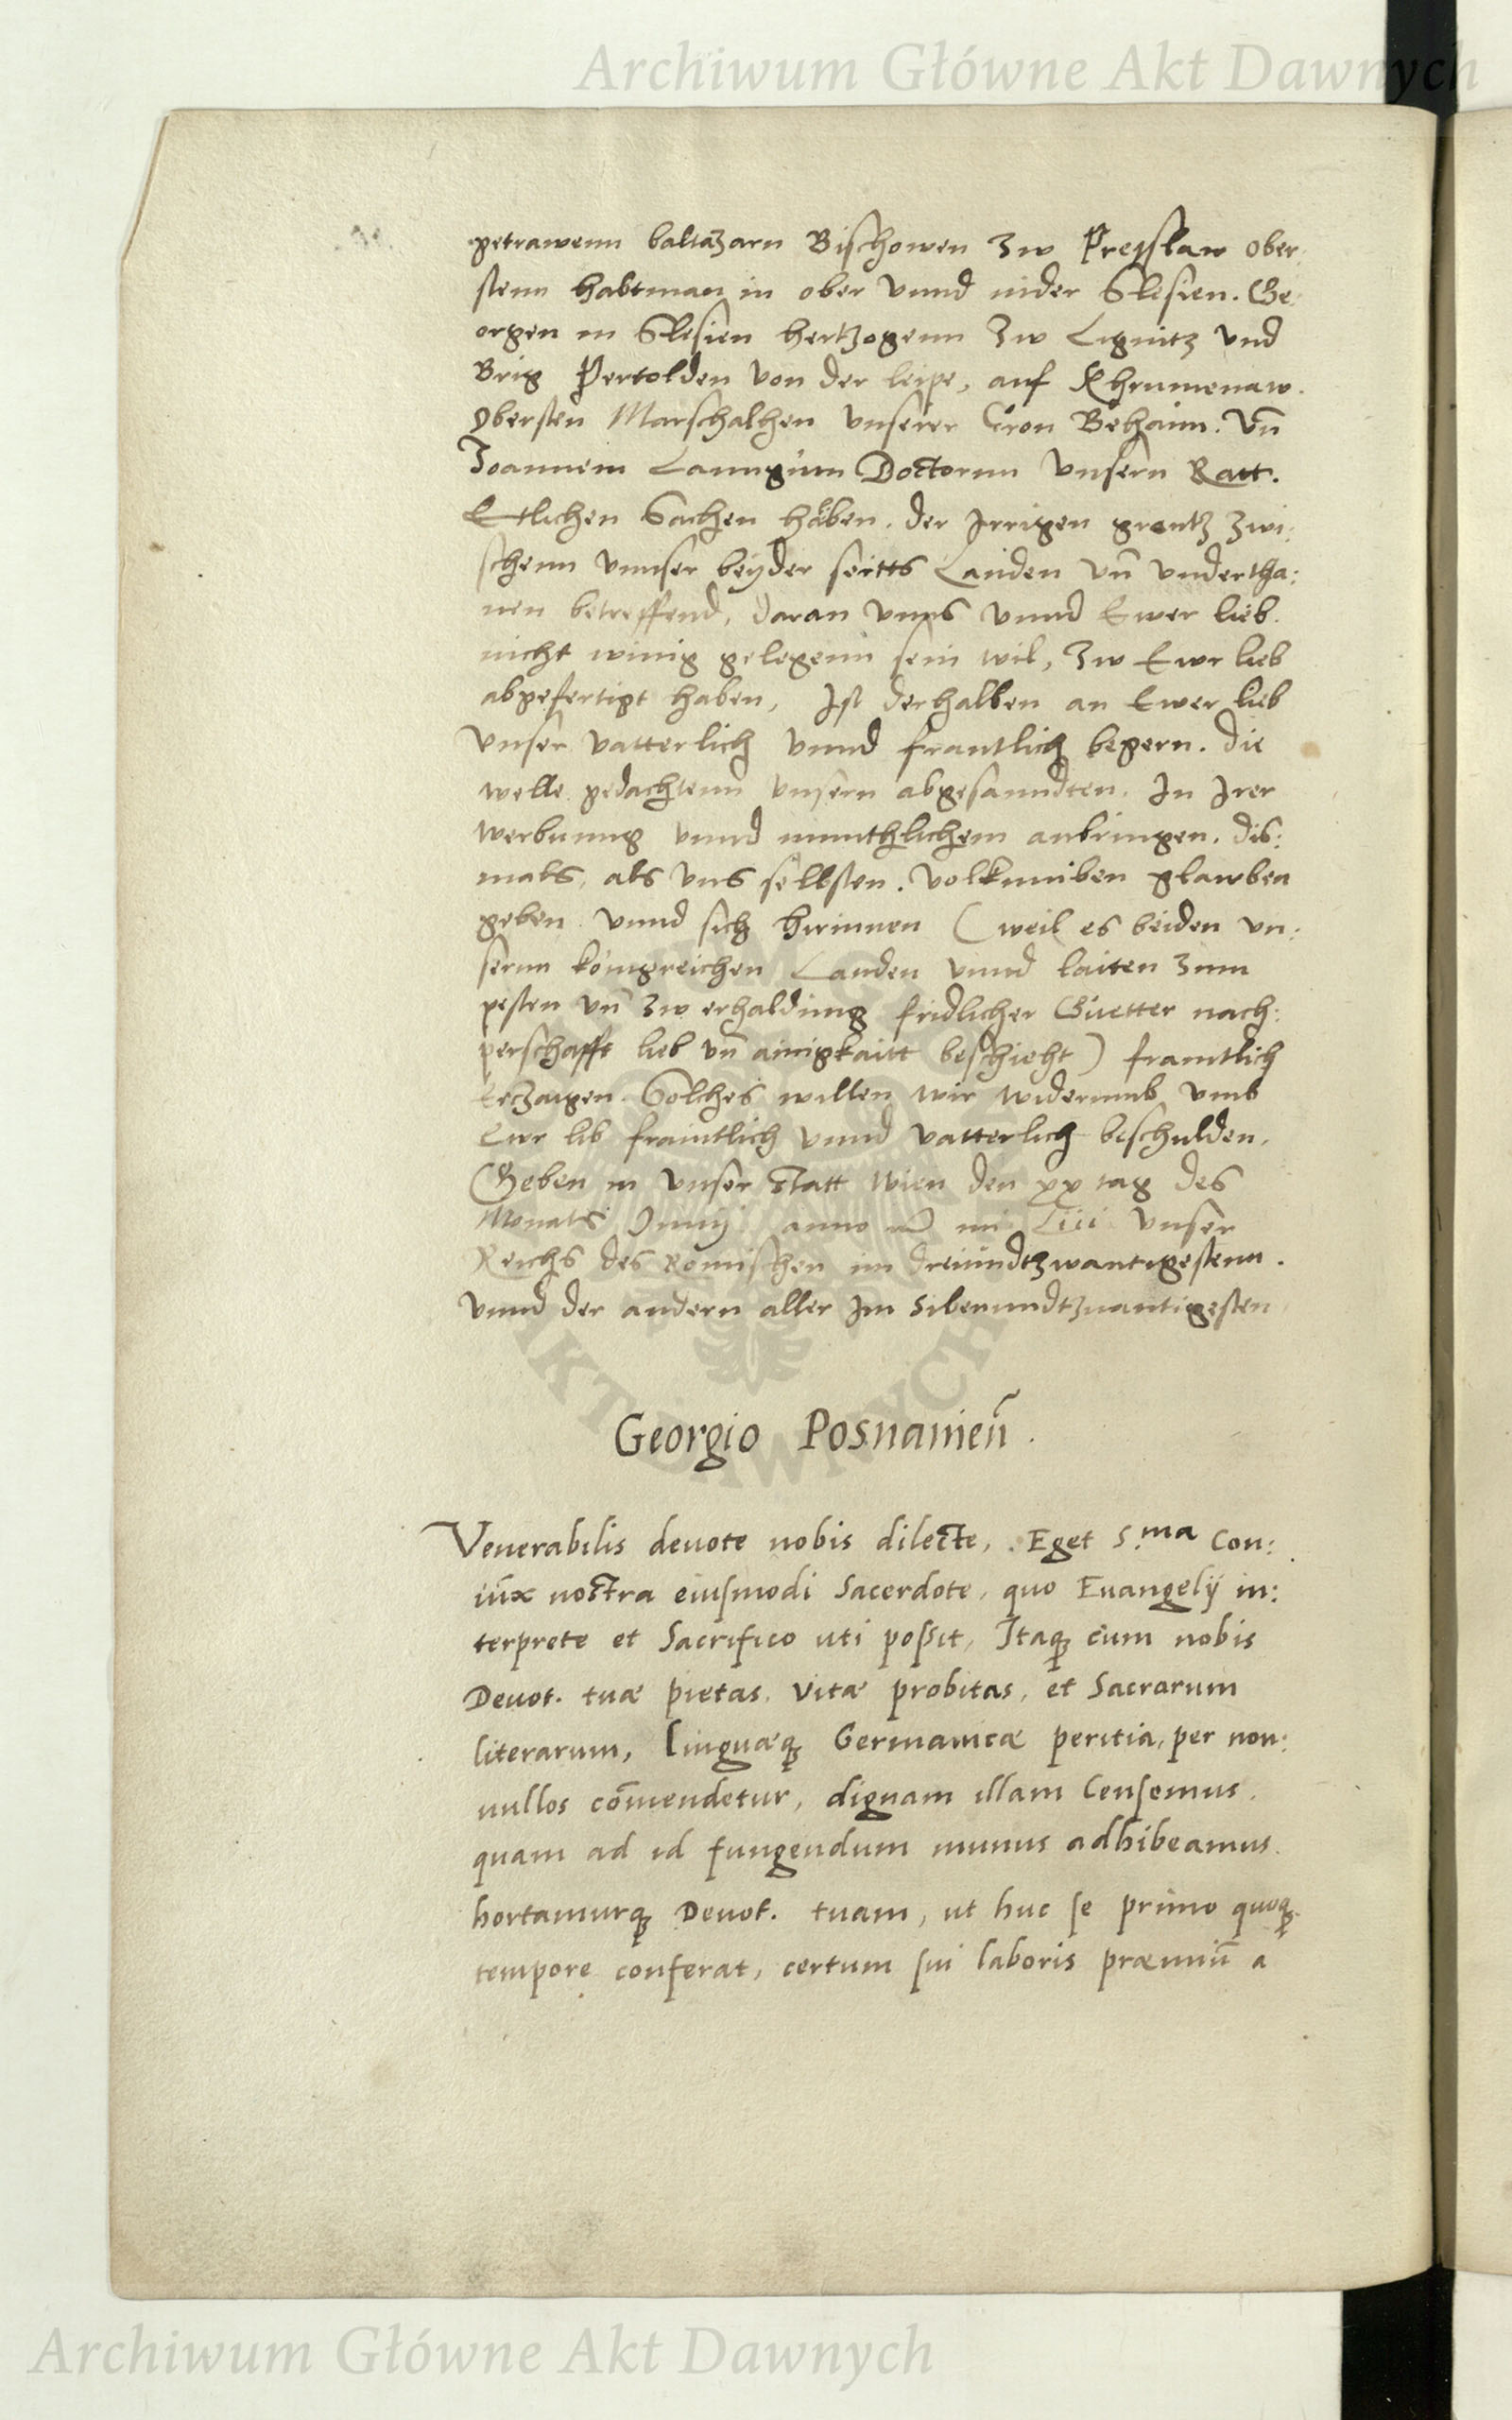 Archiwum Główne Akt Dawnych
getrawenn baltazarn Bischowen zw Preyslaw ober:
stenn habtman in ober vnnd nider Slesien. Ge:
orgen in Slesien hertzogenn zw Lignitz vnd
Brig Pertolden von der leipe, auf Khrumenaw.
Obersten Marschalhen vnserer Cron Behaim. vn̄
Joannem Lanngium Doctorem vnsern Ratt.
Etlichen Sachen haben. der Jrrigen grentz zwi:
schenn vnnser beyder seitts Landen vn̄ vndertha:
nen betreffend, daran vnns vnnd Ewer lieb.
nicht winig gelegenn sein wil, zw Ewr lieb
abgefertigt haben, Ist derhalben an Ewer lieb
vnser vatterlich vnnd frantlich begern. die
welle gedachtenn vnsern abgesanndten. In Irer
werbunng vnnd munthlichem anbringen. dis:
mals, als vns selbsten. volkumben glawben
geben vnnd sich hirinnen (weil es beiden vn:
sernn königreichen Landen vnnd laiten zum
pesten vn̄ zw erhaldung fridlicher Guetter nach:
perschafft lieb vn̄ ainigkaitt beschieht) frantlich
Erczaigen Solches willen wir widerumb vmb
Ewr lib fraintlich vnnd vatterlich beschulden.
Geben in vnser statt Wien den xx tag des
Monats Junij anno im Liii vnser
Reichs des Romischen im dreiundtzwantigestenn.
vnnd der andern aller Im Sibenundtzwantigesten
Georgio Posnanien̄.
Venerabilis deuote nobis dilecte, Eget S.ma Con:
iux nostra eiusmodi Sacerdote, quo Euangelij in:
terprete et Sacrifico uti possit, Itaq; cum nobis
Deuot. tuæ pietas. vitæ probitas, et Sacrarum
literarum, linguæq; Germanicæ peritia, per non:
nullos com̄endetur, dignam illam Censemus.
quam ad id fungendum munus adhibeamus.
hortamurq; Deuot. tuam, ut huc se primo quoq;
tempore conferat, certum sui laboris præmiū a
Archiwum Główne Akt Dawnych